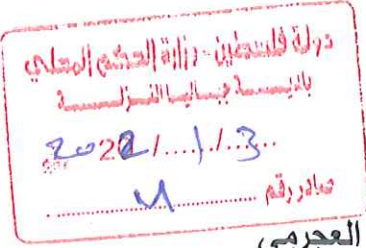 دولة فلسطين - وزارة الحكم المحلي
بلدية جباليا النزلة
2022/1/3
صادر رقم
العجرمي